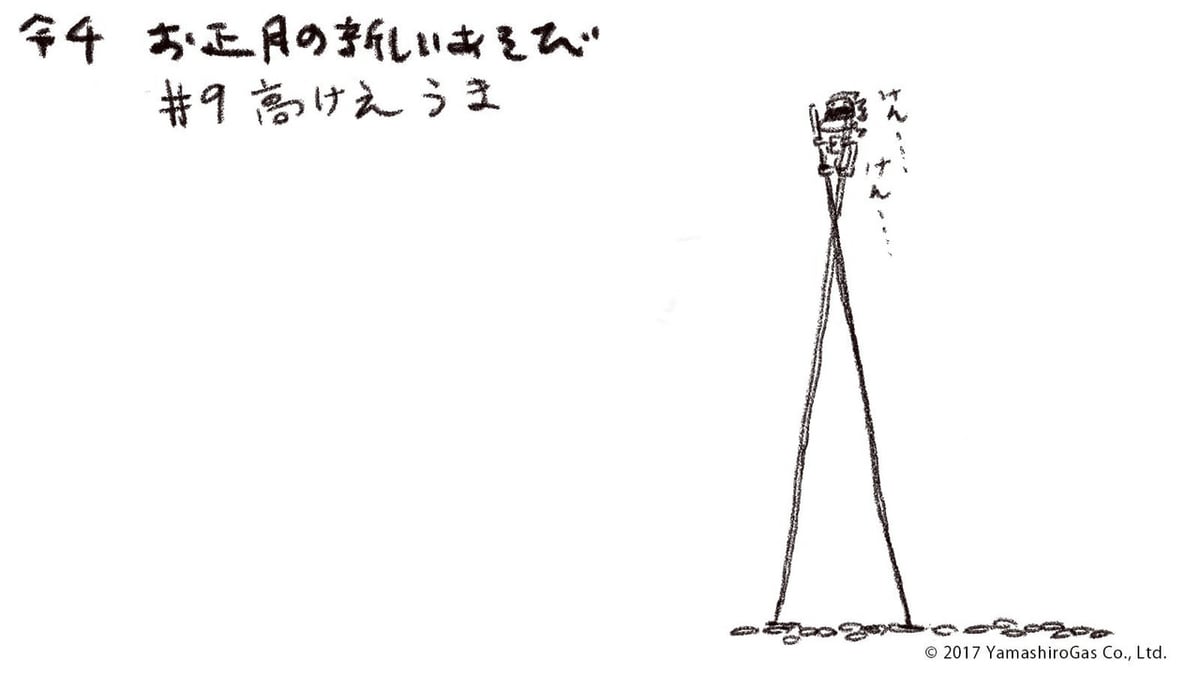 令4 お正月の新しいあそび
#9 高けえうま
けん、、、、
けん、、、、
© 2017 YamashiroGas Co., Ltd.